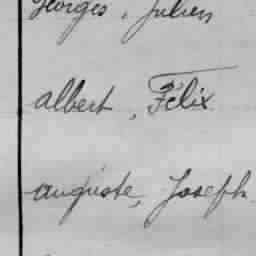 Georges, Julien
albert, Félix
auguste, Joseph